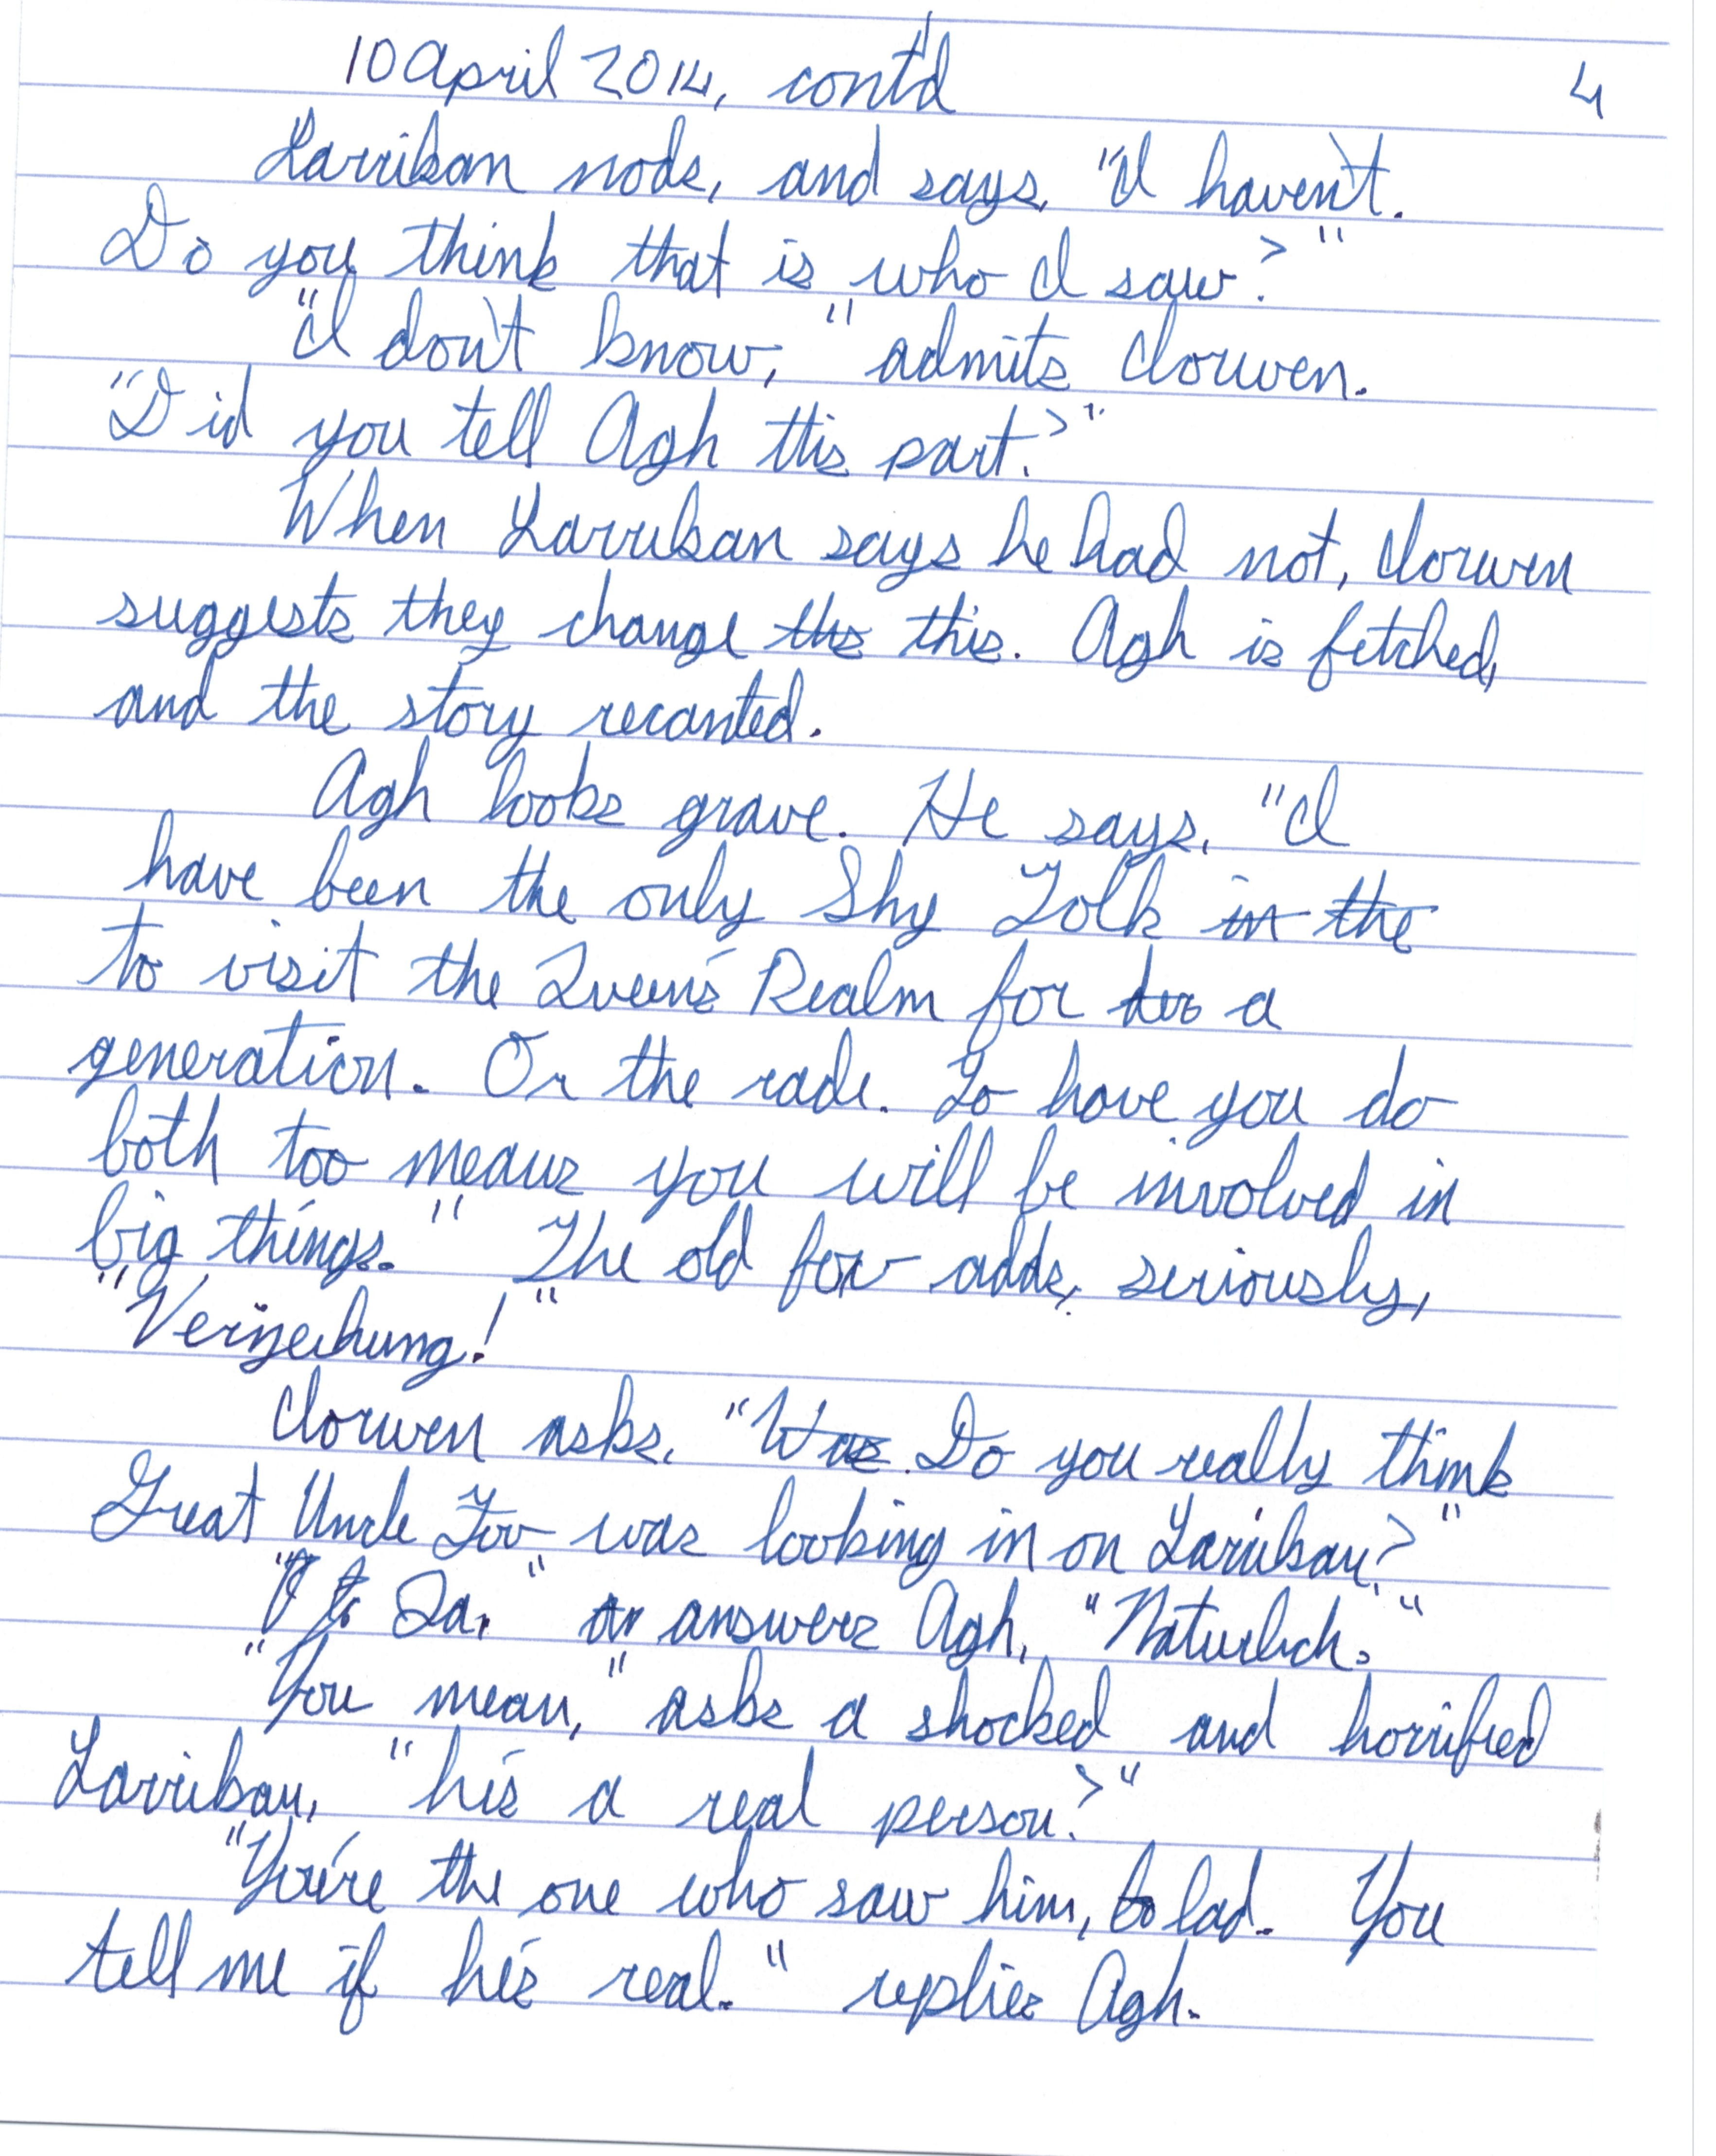 10 April 2014, cont'd 4
Larrikan nods, and says, "I haven't.
Do you think that is who I saw?"
"I don't know," admits Clorwen.
"Did you tell Agh this part?"
When Larrikan says he had not, Clorwen
suggests they change the this. Agh is fetched,
and the story recanted.
Agh looks grave. He says, "I
have been the only Shy Folk in the
to visit the Queen's Realm for a
generation. Or the rade. To have you do
both too means you will be involved in
big things." The old fox adds, seriously,
"Verzeihung!"
Clorwen asks, "Was Do you really think
Great Uncle Fox was looking in on Larrikan?"
"Ja." an answers Agh, "Naturlich."
"You mean," asks a shocked and horrified
Larrikan, "he's a real person?"
"You're the one who saw him, to lad. You
tell me if he's real." replies Agh.